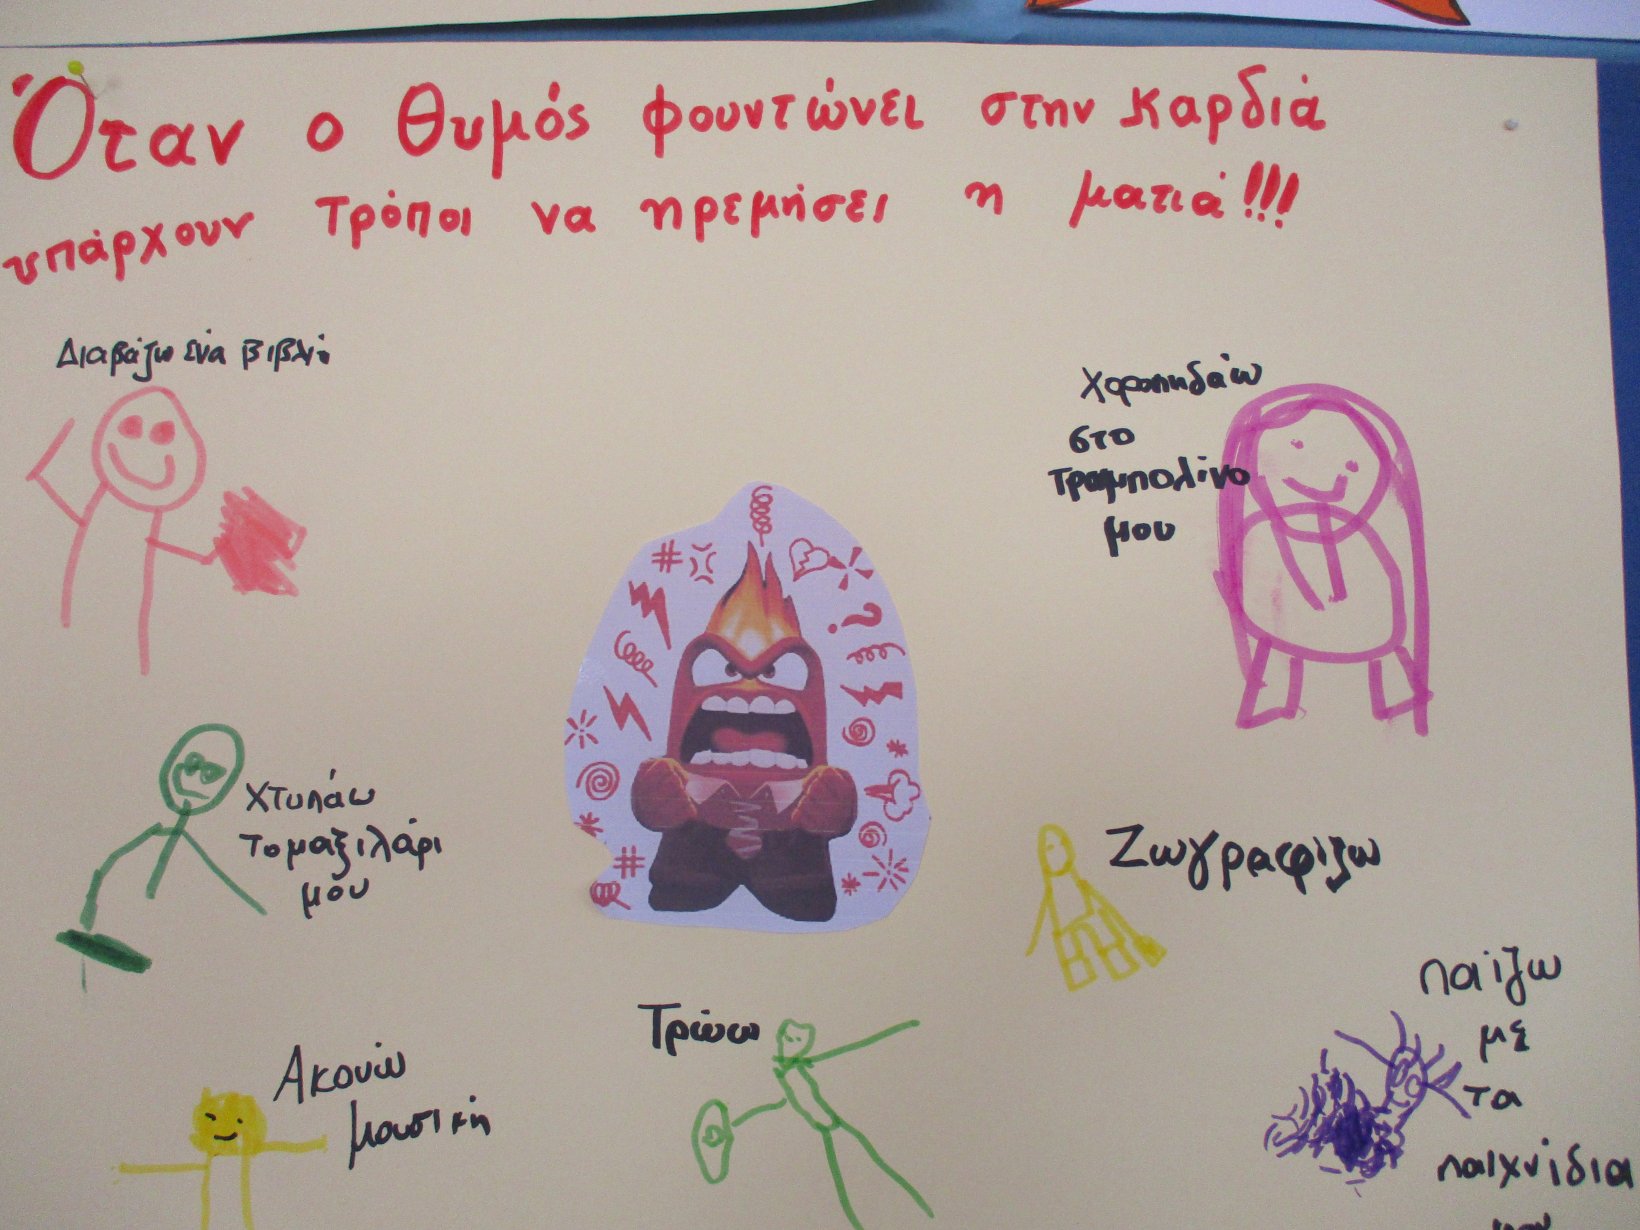 Όταν ο θυμός φουντώνει στην καρδιά
υπάρχουν τρόποι να ηρεμήσει η ματιά!!!
Διαβάζω ένα βιβλίο
Χοροπηδάω
στο
τραμπολίνο
μου
Χτυπάω
το μαξιλάρι
μου
Ζωγραφίζω
Τρώω
Ακούω
μουσική
παίζω
με
τα
παιχνίδια
μου